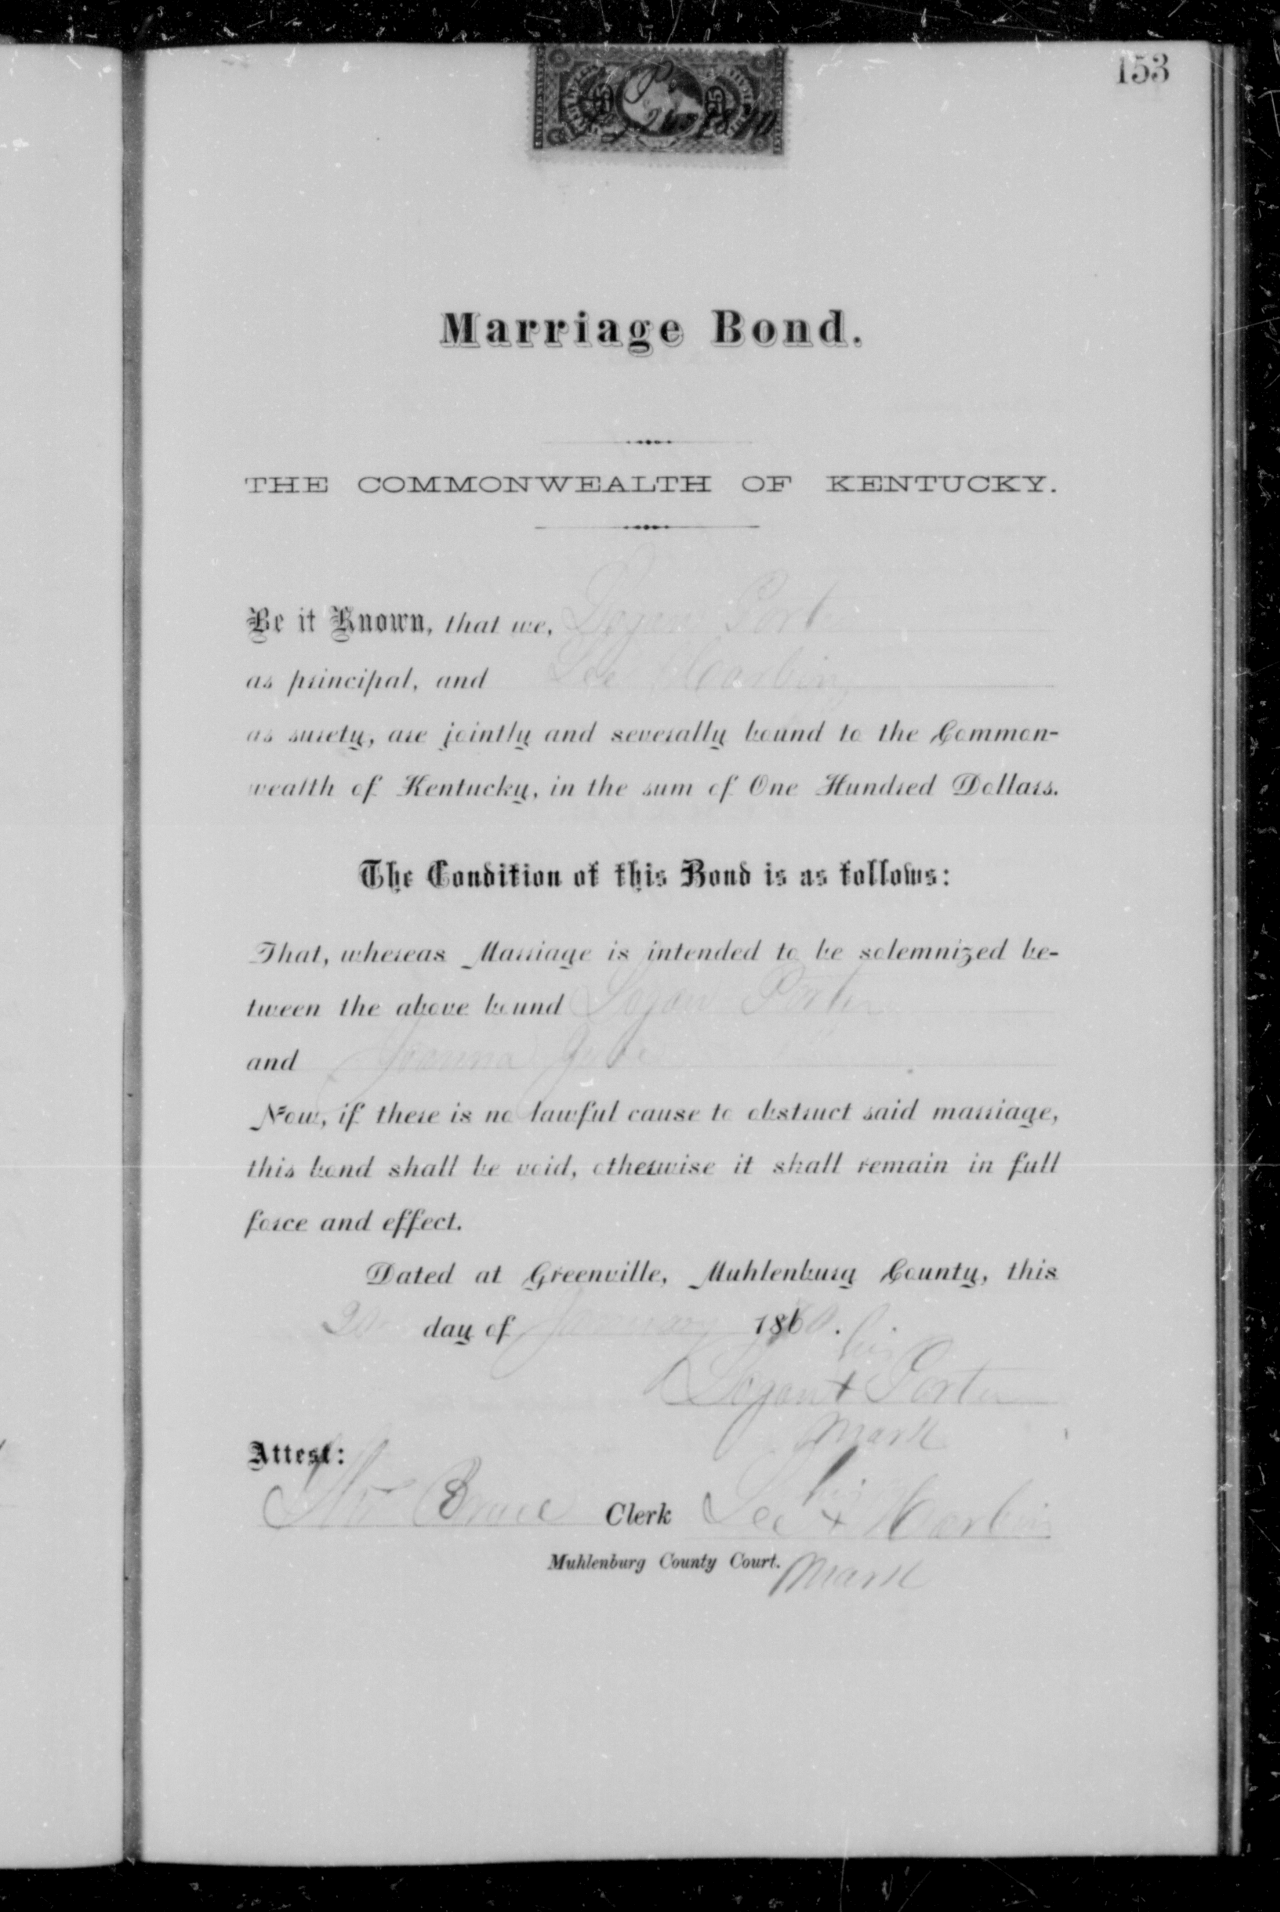 153
1870
Marriage Bond.
THE COMMONWEALTH OF KENTUCKY.
Be it Known, that we, Logan Porter
as principal, and Lee Harbin
as surety, are jointly and severally bound to the Common-
wealth of Kentucky, in the sum of One Hundred Dollars.
The Condition of this Bond is as follows:
That, whereas Marriage is intended to be solemnized be-
tween the above bound Logan Porter
and Joanna
Now, if there is no lawful cause to obstruct said marriage,
this bond shall be void, otherwise it shall remain in full
force and effect.
Dated at Greenville, Muhlenburg County, this
day of January 18
his
Logan + Porter
mark
Attest:
his
Bruce Clerk Lee + Harbin
Muhlenburg County Court. mark